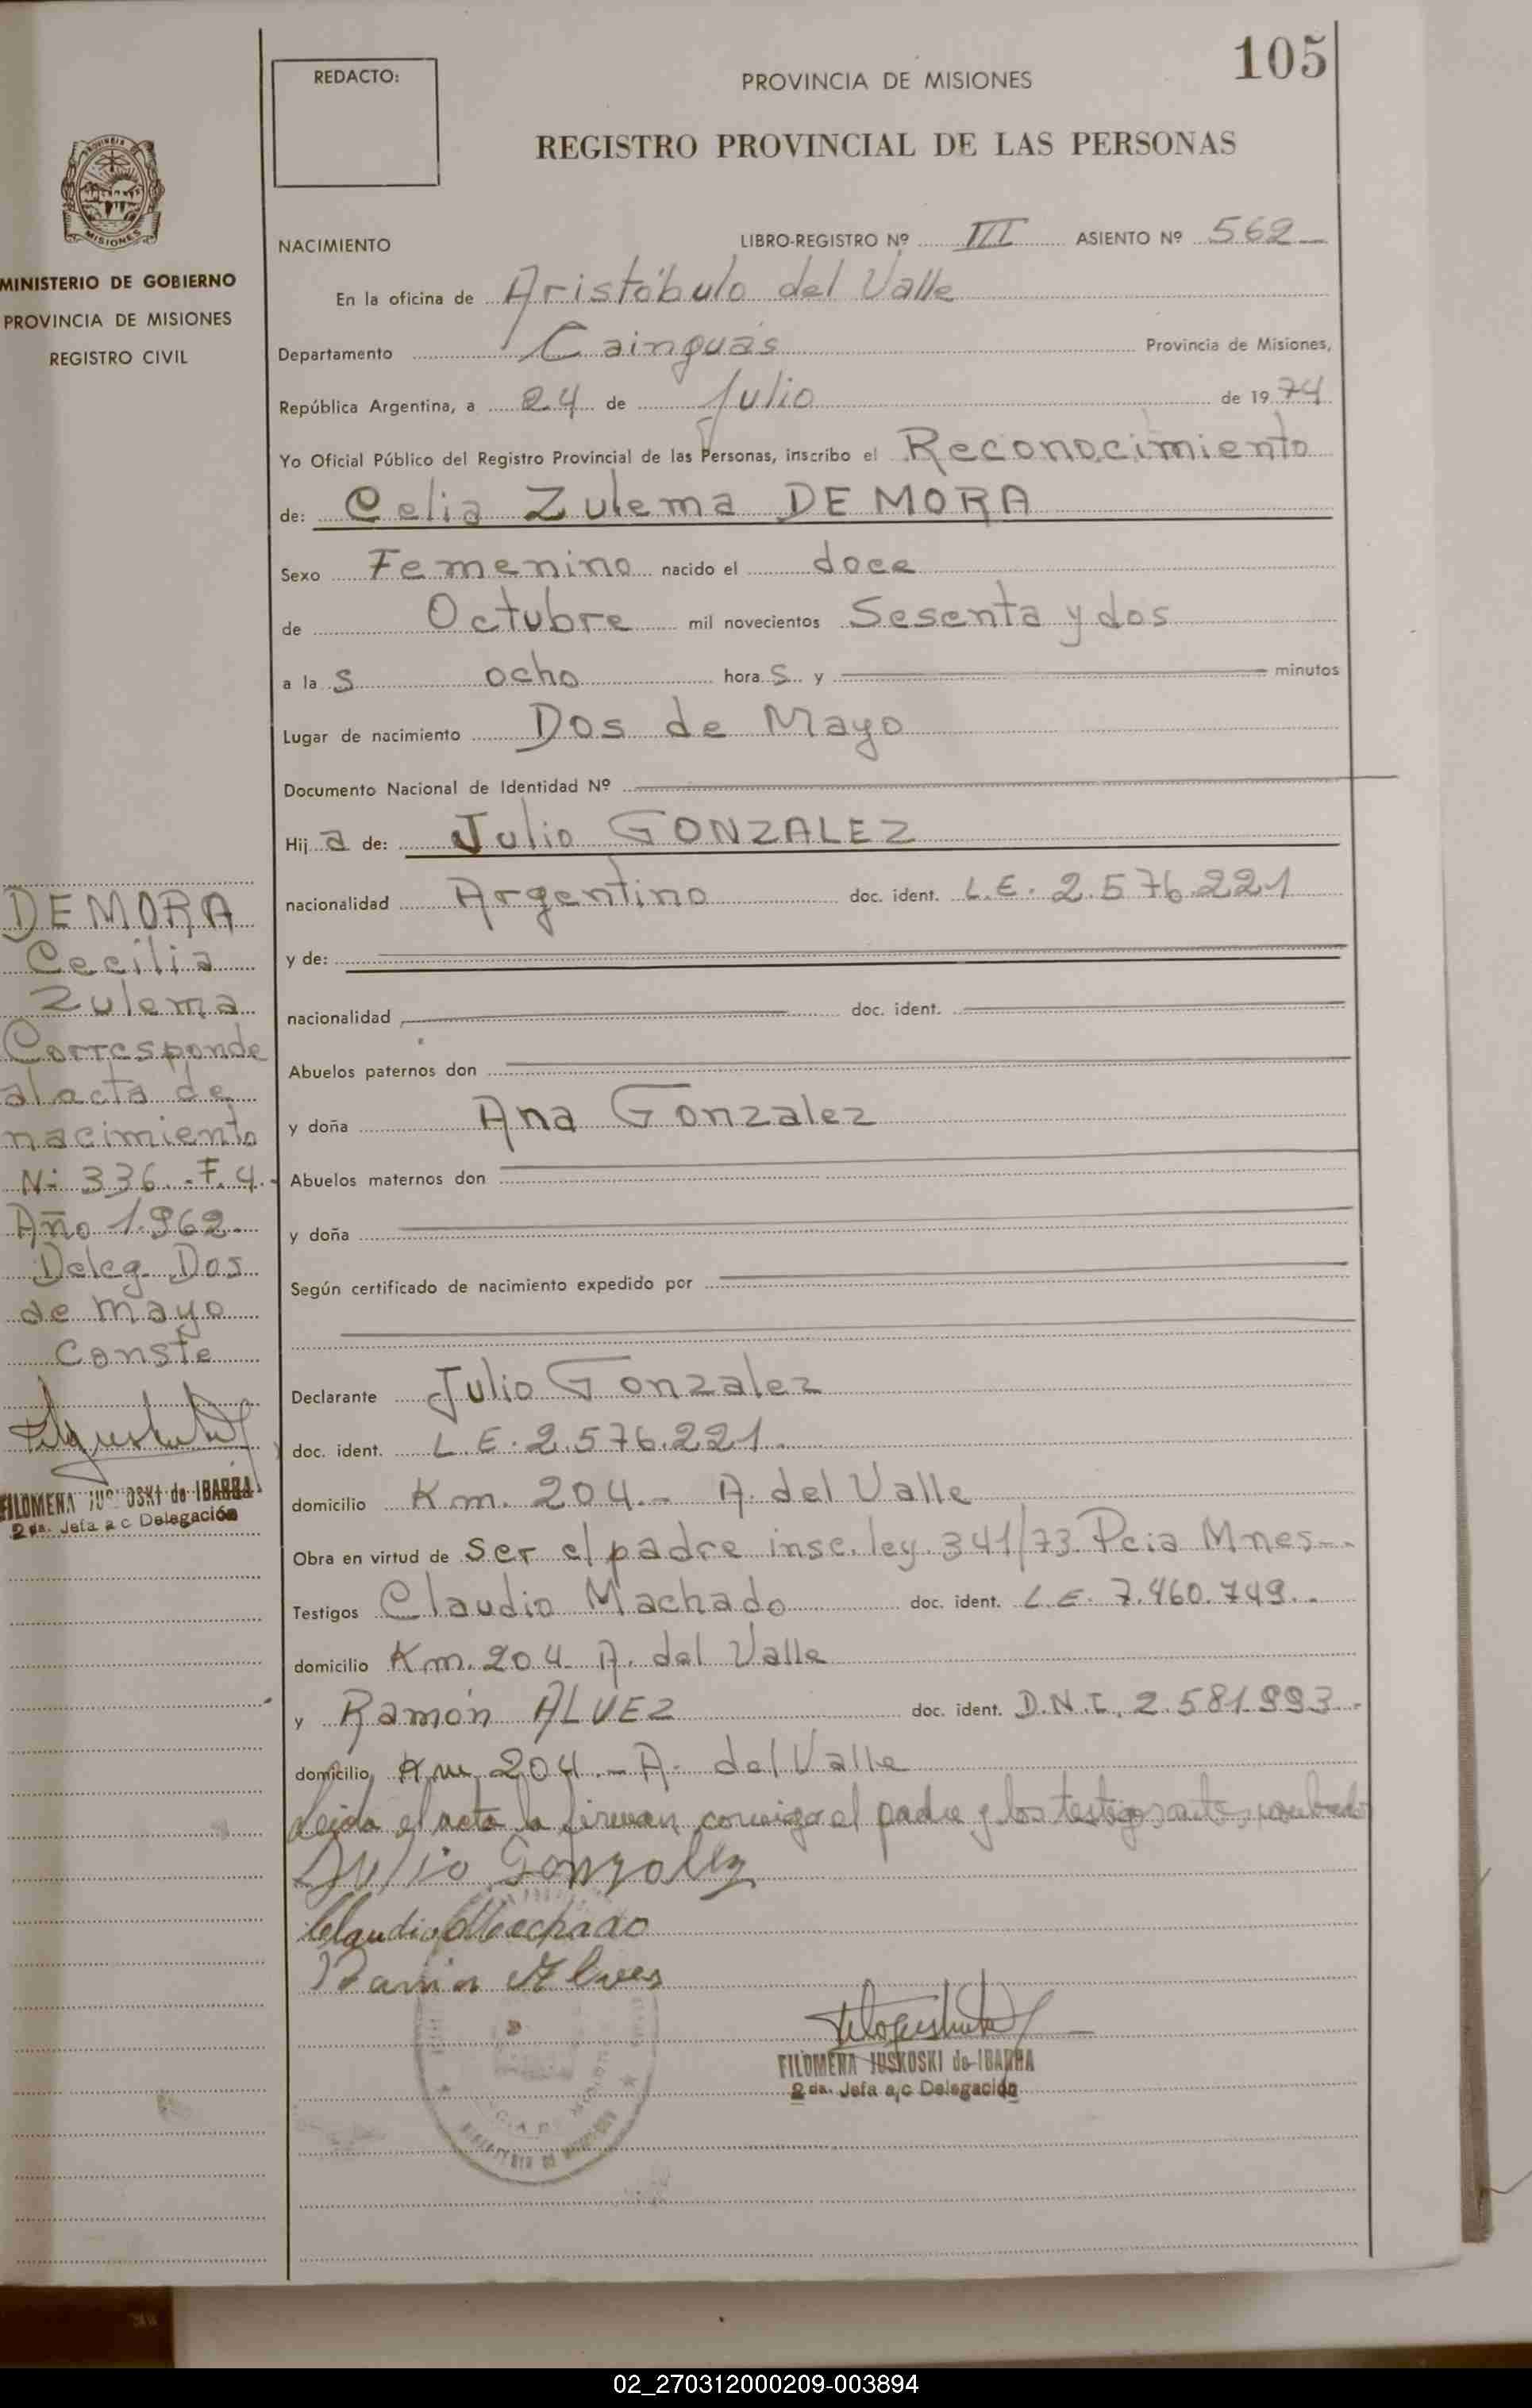 105
REDACTO:
PROVINCIA DE MISIONES
REGISTRO PROVINCIAL DE LAS PERSONAS
MISIONES
MINISTERIO DE GOBIERNO
PROVINCIA DE MISIONES
REGISTRO CIVIL
NACIMIENTO LIBRO-REGISTRO Nº III ASIENTO Nº 562
En la oficina de Aristóbulo del Valle
Departamento Cainguás Provincia de Misiones,
República Argentina, a 24 de Julio de 1974
Yo Oficial Público del Registro Provincial de las Personas, inscribo el Reconocimiento
de: Celia Zulema DEMORA
Sexo Femenino nacido el doce
de Octubre mil novecientos Sesenta y dos
a la s ocho hora s y minutos
Lugar de nacimiento Dos de Mayo
Documento Nacional de Identidad Nº
Hij a de: Julio GONZALEZ
nacionalidad Argentino doc. ident. L.E. 2.576.221
y de:
nacionalidad doc. ident.
Abuelos paternos don
y doña Ana Gonzalez
Abuelos maternos don
y doña
Según certificado de nacimiento expedido por
Declarante Julio Gonzalez
doc. ident. L.E. 2.576.221.
domicilio Km. 204.- A. del Valle
Obra en virtud de ser el padre insc. ley. 341/73. Pcia Mnes-.
Testigos Claudio Machado doc. ident. L.E. 7.460.749..
domicilio Km. 204 A. del Valle
y Ramón ALVEZ doc. ident. D.N.I. 2.581.993.
domicilio Km 204.- A. del Valle
Leida el acta la firman conmigo el padre y los testigos antes
Julio Gonzalez
Claudio Machado
Ramon Alves
FILOMENA JUSKOSKI de IBARRA
2 da. Jefa a/c Delegación
DEMORA
Cecilia
Zulema
Corresponde
al acta de
nacimiento
Nº 336.-F.4.
Año 1.962-
Deleg Dos
de mayo
Conste
FILOMENA JUSKOSKI de IBARRA
2 da. Jefa a c Delegación
02_270312000209-003894